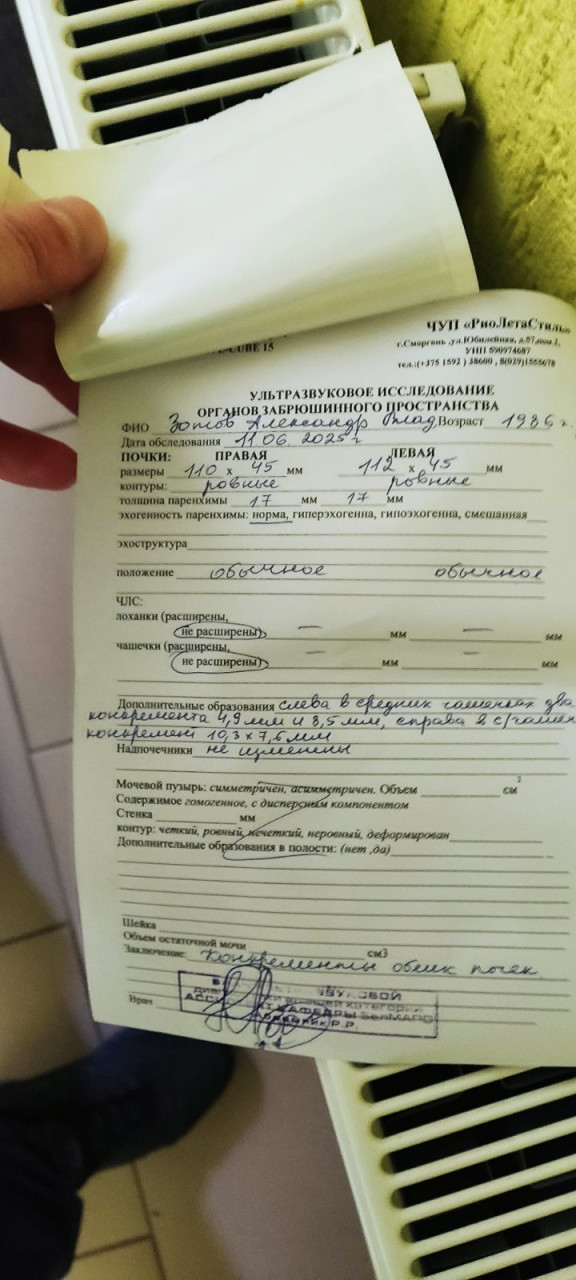 ЧУП «РиоЛетаСтиль»
E-CUBE 15
г.Сморгонь ,ул.Юбилейная, д.57,пом.1,
УНП 590974687
тел.:(+375 1592 ) 38600 , 8(029)1555678
УЛЬТРАЗВУКОВОЕ ИССЛЕДОВАНИЕ
ОРГАНОВ ЗАБРЮШИННОГО ПРОСТРАНСТВА
ФИО Зотов Александр Влад. Возраст 1986 г.
Дата обследования 11.06.2025 г
ПОЧКИ: ПРАВАЯ ЛЕВАЯ
размеры 110 х 45 мм 112 х 45 мм
контуры: ровные ровные
толщина паренхимы 17 мм 17 мм
эхогенность паренхимы: норма, гиперэхогенна, гипоэхогенна, смешанная
эхоструктура
положение обычное обычное
ЧЛС:
лоханки (расширены,
не расширены) — мм — мм
чашечки (расширены,
не расширены) — мм — мм
Дополнительные образования слева в средних чашечках два
конкремента 4,9 мм и 8,5 мм, справа в с/чашеч
конкремент 10,3 х 7,6 мм
Надпочечники не изменены
Мочевой пузырь: симметричен, асимметричен. Объем см³
Содержимое гомогенное, с дисперсным компонентом
Стенка мм
контур: четкий, ровный, нечеткий, неровный, деформирован
Дополнительные образования в полости: (нет ,да)
Шейка
Объем остаточной мочи см3
Заключение: Конкременты обеих почек
ЗВУКОВОЙ
высшей категории
АССИСТЕНТ КАФЕДРЫ БелМАПО
Врач Р.Р.